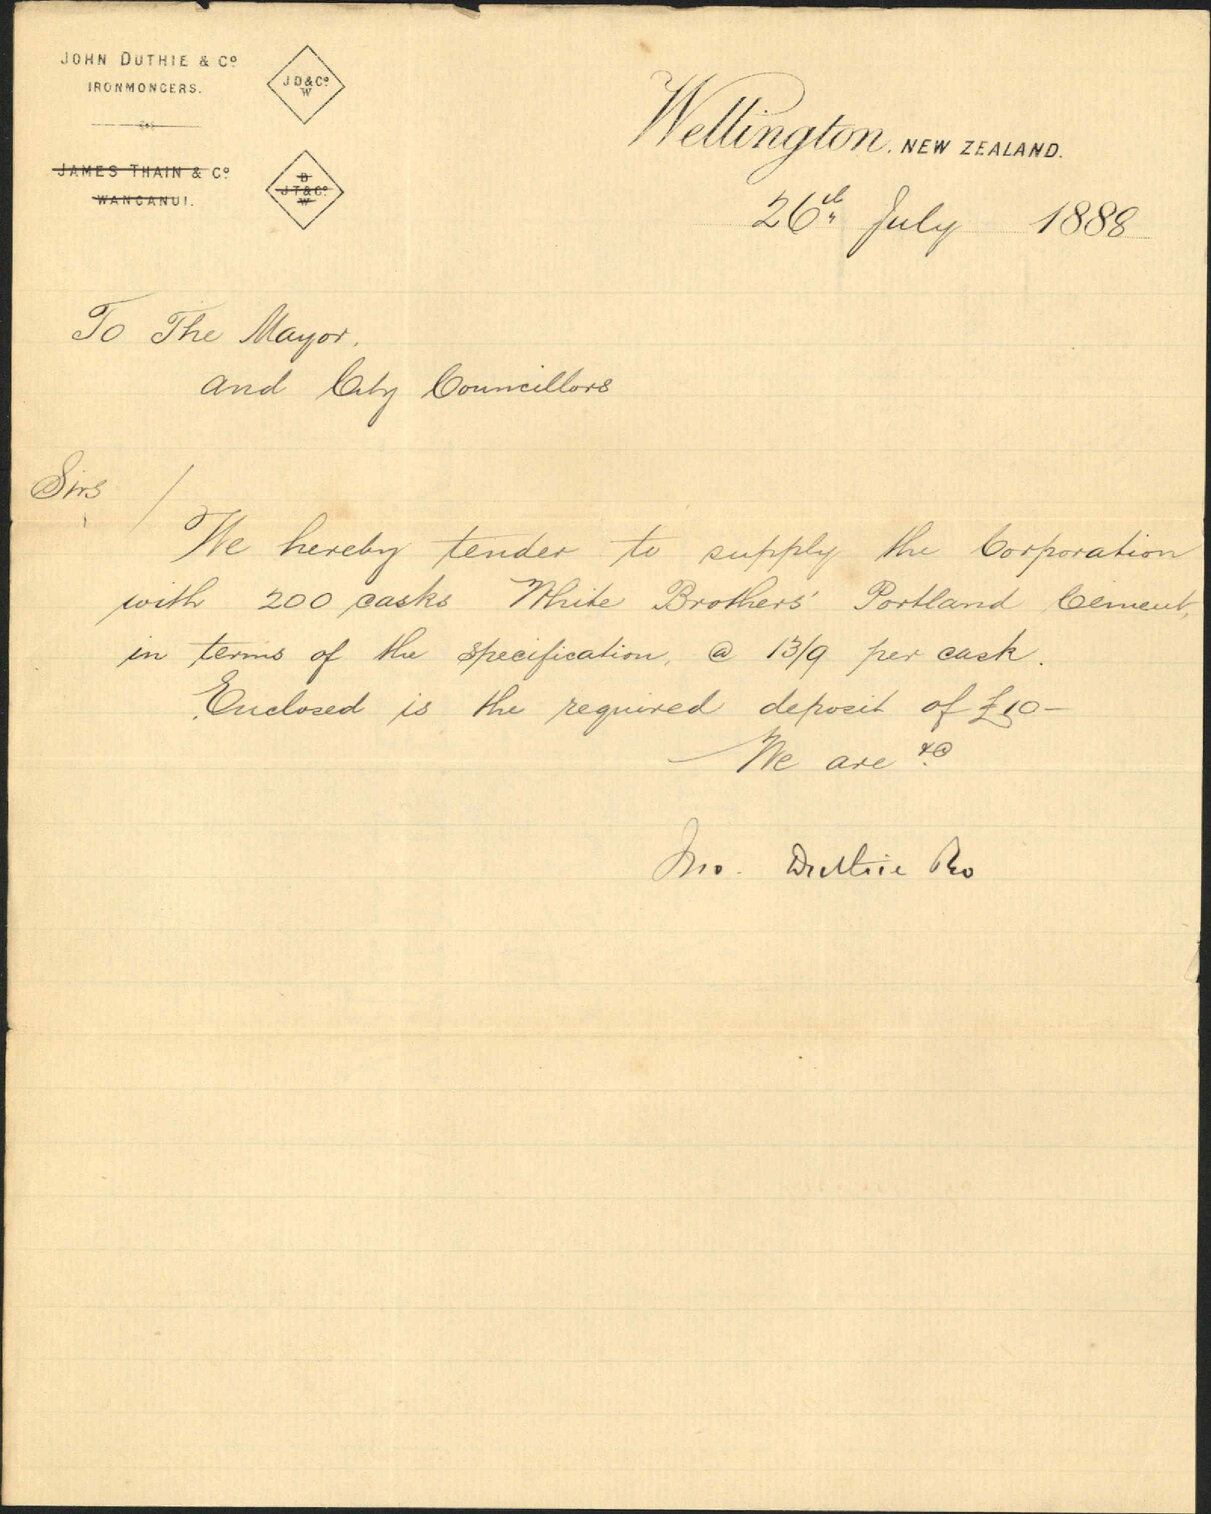 JOHN DUTHIE & Co
IRONMONGERS.
J D & Co
W
JAMES THAIN & Co
WANGANUI.
D
J T & Co
W
Wellington, NEW ZEALAND.
26th July 1888
To The Mayor.
and City Councillors
Sirs /
We hereby tender to supply the Corporation
with 200 casks White Brothers' Portland Cement,
in terms of the specification, @ 13/9 per cask.
Enclosed is the required deposit of £10-
We are &c
Jno. Duthie & Co